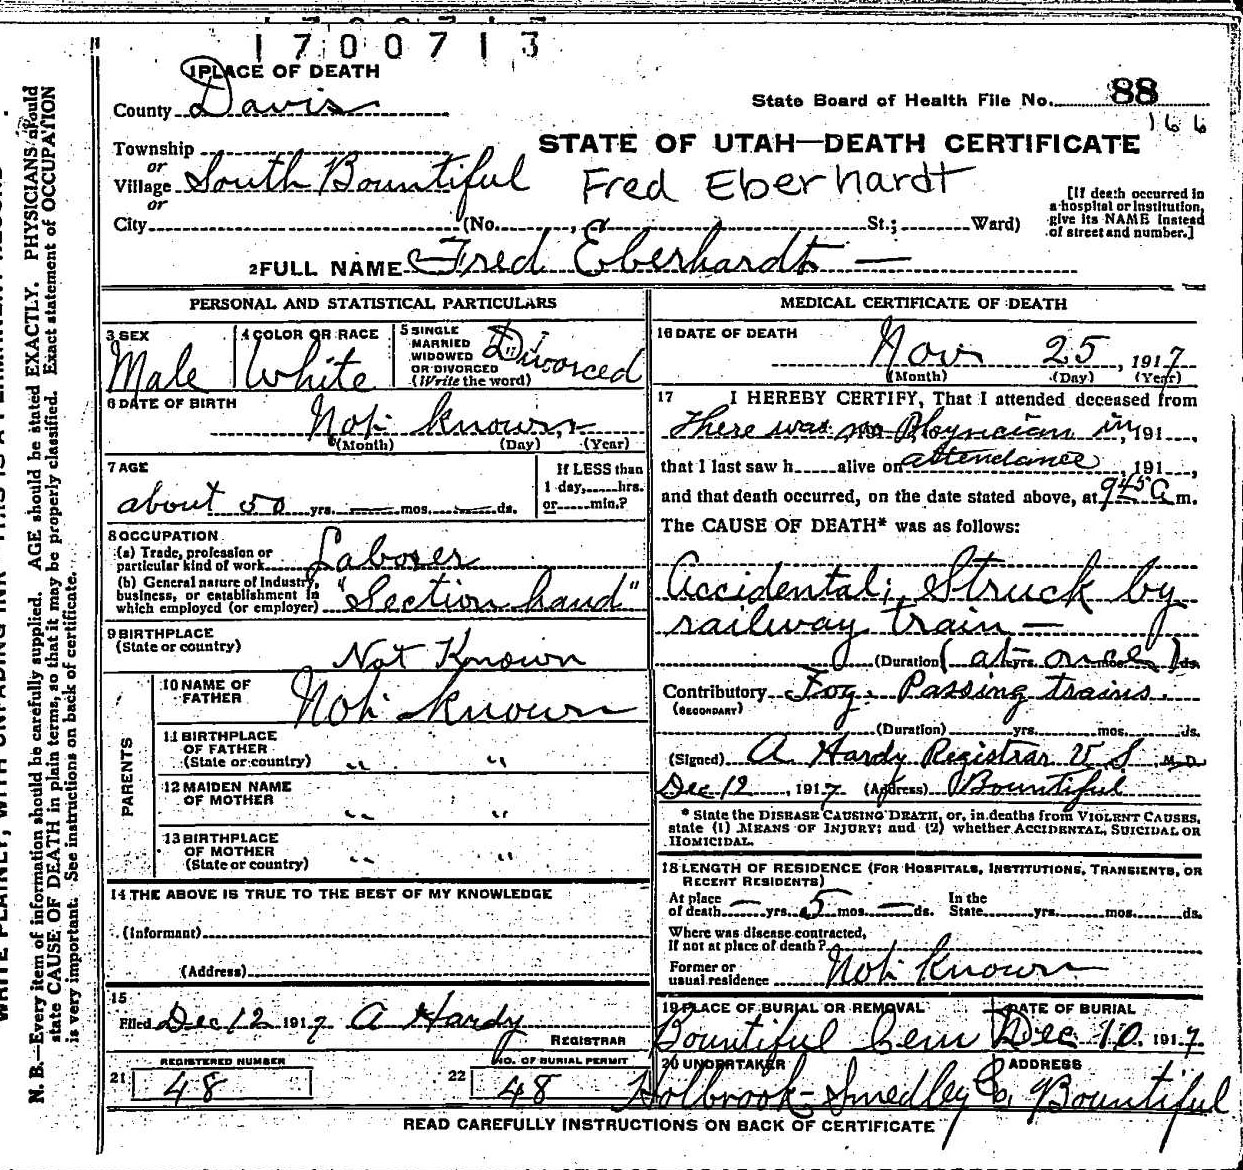 1700713
1 PLACE OF DEATH
County Davis
State Board of Health File No. 88
166
STATE OF UTAH—DEATH CERTIFICATE
Township
or
Village South Bountiful
or
City (No. , St.; Ward)
Fred Eberhardt
[If death occurred in
a hospital or institution,
give its NAME instead
of street and number.]
2 FULL NAME Fred Eberhardt —
PERSONAL AND STATISTICAL PARTICULARS
3 SEX
Male
4 COLOR OR RACE
White
5 SINGLE
MARRIED
WIDOWED
OR DIVORCED
(Write the word)
Divorced
6 DATE OF BIRTH
Not known
(Month) (Day) (Year)
7 AGE
about 50 yrs. — mos. — ds.
If LESS than
1 day, hrs.
or min.?
8 OCCUPATION
(a) Trade, profession or
particular kind of work Laborer
(b) General nature of Industry,
business, or establishment in
which employed (or employer) "Section hand"
9 BIRTHPLACE
(State or country)
Not Known
PARENTS
10 NAME OF
FATHER
Not known
11 BIRTHPLACE
OF FATHER
(State or country) " "
12 MAIDEN NAME
OF MOTHER
" "
13 BIRTHPLACE
OF MOTHER
(State or country) " "
14 THE ABOVE IS TRUE TO THE BEST OF MY KNOWLEDGE
(Informant)
(Address)
15
Filed Dec 12 1917 A Hardy
REGISTRAR
REGISTERED NUMBER
21 48
NO. OF BURIAL PERMIT
22 48
MEDICAL CERTIFICATE OF DEATH
16 DATE OF DEATH
Nov 25, 1917
(Month) (Day) (Year)
17 I HEREBY CERTIFY, That I attended deceased from
There was no Physician in, 191 ,
that I last saw h alive on attendance, 191 ,
and that death occurred, on the date stated above, at 9 45 A m.
The CAUSE OF DEATH* was as follows:
Accidental; Struck by
railway train —
(Duration (at yrs. once mos. ) ds.
Contributory Fog. Passing trains.
(SECONDARY)
(Duration) yrs. mos. ds.
(Signed) A Hardy Registrar V S M.D.
Dec 12, 1917 (Address) Bountiful
* State the DISEASE CAUSING DEATH, or, in deaths from VIOLENT CAUSES,
state (1) MEANS OF INJURY; and (2) whether ACCIDENTAL, SUICIDAL OR
HOMICIDAL.
18 LENGTH OF RESIDENCE (FOR HOSPITALS, INSTITUTIONS, TRANSIENTS, OR
RECENT RESIDENTS)
At place
of death — yrs. 5 mos. — ds.
In the
State yrs. mos. ds.
Where was disease contracted,
if not at place of death?
Former or
usual residence Not known
19 PLACE OF BURIAL OR REMOVAL
Bountiful Cem
DATE OF BURIAL
Dec 10. 1917.
20 UNDERTAKER
Holbrook-Smedley Co.
ADDRESS
Bountiful
READ CAREFULLY INSTRUCTIONS ON BACK OF CERTIFICATE
N. B.—Every item of information should be carefully supplied. AGE should be stated EXACTLY. PHYSICIANS should
state CAUSE OF DEATH in plain terms, so that it may be properly classified. Exact statement of OCCUPATION
is very important. See instructions on back of certificate.
WRITE PLAINLY, WITH UNFADING INK—THIS IS A PERMANENT RECORD